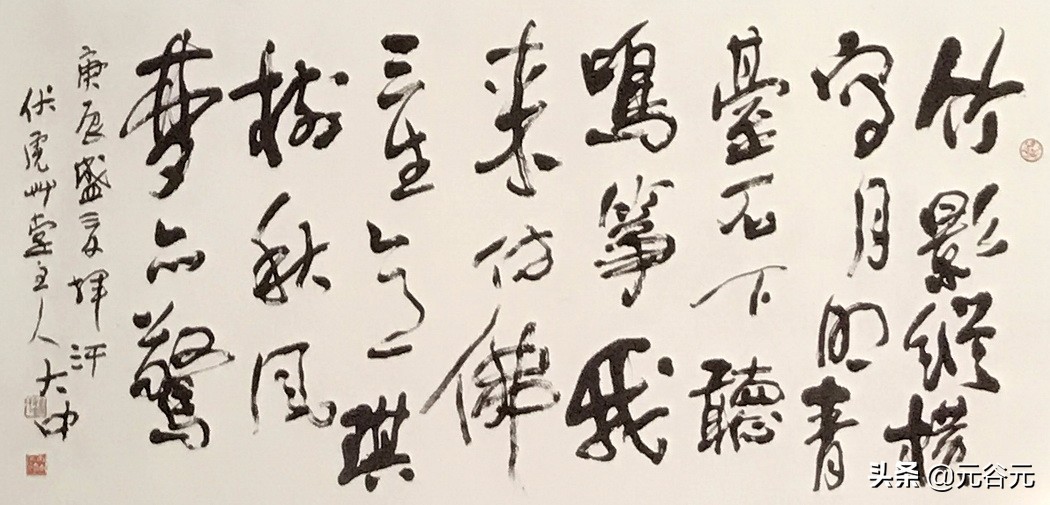 竹影縱橫
寫月明青
臺石下聽
鳴箏我
來仿佛
三生琪
樹秋風
夢亦驚
庚辰盛夏揮汗
伏虎艸堂主人大中
头条 @元谷元